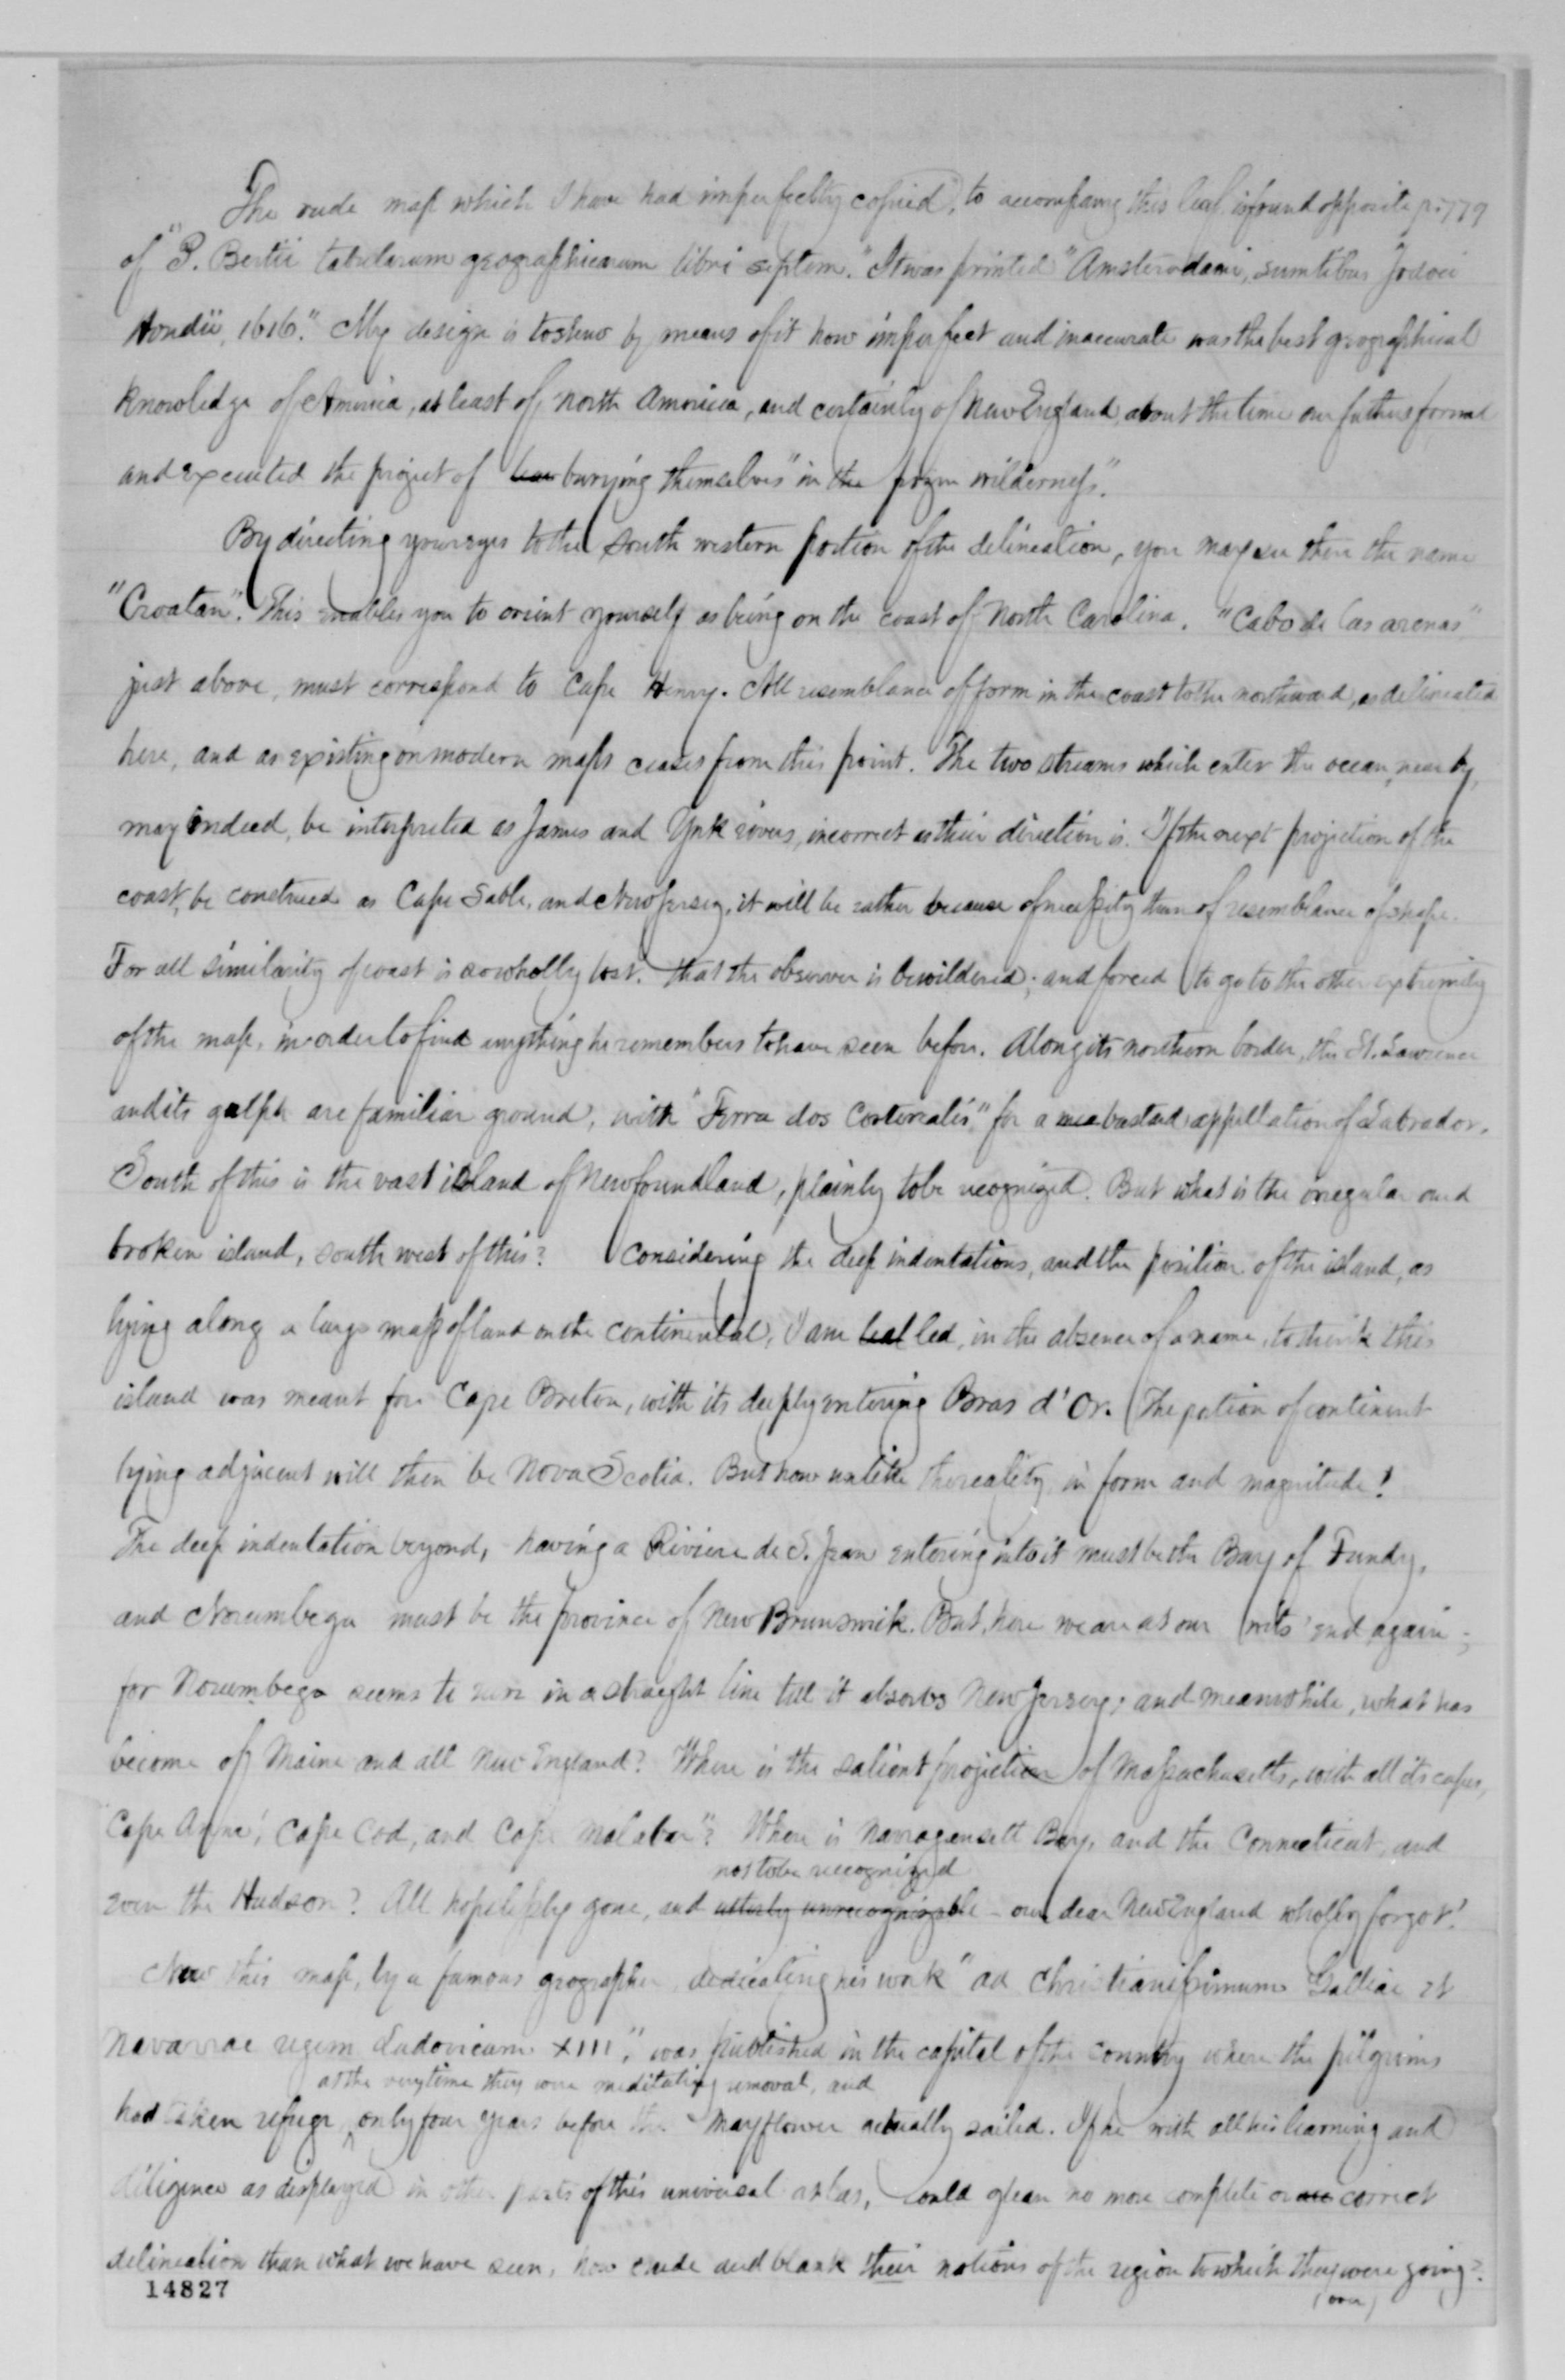 The rude map which I have had imperfectly copied, to accompany this leaf, is found opposite p. 779
of "P. Bertii tabularum geographicarum libri septem." It was printed "Amsterodami, sumtibus Jodoci
Hondii, 1616." My design is to shew by means of it how imperfect and inaccurate was the best geographical
knowledge of America, at least of North America, and certainly of New England, about the time our fathers formed
and executed the project of burying themselves "in the frozen wilderness".
By directing your eyes to the south western portion of the delineation, you may see there the name
"Croatan". This enables you to orient yourself as being on the coast of North Carolina. "Cabo de las arenas"
just above, must correspond to Cape Henry. All resemblance of form in the coast to the northward, as delineated
here, and as existing on modern maps ceases from this point. The two streams which enter the ocean, near by,
may indeed, be interpreted as James and York rivers, incorrect as their direction is. If the next projection of the
coast, be construed as Cape Sable, and New Jersey, it will be rather because of necessity than of resemblance of shape.
For all similarity of coast is so wholly lost, that the observer is bewildered; and forced to go to the other extremity
of the map, in order to find anything he remembers to have seen before. Along its northern border, the St. Lawrence
and its gulph are familiar ground, with "Terra dos Corterealis," for a bastard appellation of Labrador.
South of this is the vast island of Newfoundland, plainly to be recognized. But what is the irregular and
broken island, south west of this? Considering the deep indentations, and the position of the island, as
lying along a large mass of land on the continental, I am led, in the absence of a name, to think this
island was meant for Cape Breton, with its deeply entering Bras d'Or. The portion of continent
lying adjacent will then be Nova Scotia. But how unlike the reality in form and magnitude!
The deep indentation beyond, having a Riviere de S. Jean entering into it must be the Bay of Fundy,
and Norumbega must be the province of New Brunswick. But, here we are at our wits' end again;
for Norumbega seems to run in a straight line till it absorbs New Jersey; and meanwhile, what has
become of Maine and all New England? Where is the salient projection of Massachusetts, with all its capes,
Cape Anne, Cape Cod, and Cape Malabar"? Where is Narragansett Bay, and the Connecticut, and
not to be recognized
even the Hudson? All hopelessly gone, and utterly unrecognizable - our dear New England wholly forgot!
Now this map, by a famous geographer, dedicating his work "ad Christianissimum Galliae et
Navarrae regem Ludovicum XIII", was published in the capital of the country where the pilgrims
at the very time they were meditating removal, and
had taken refuge, only four years before the Mayflower actually sailed. If he with all his learning and
diligence as displayed in other parts of this universal atlas, could glean no more complete or correct
delineation than what we have seen, how crude and blank their notions of the region to which they were going?
(over)
14827